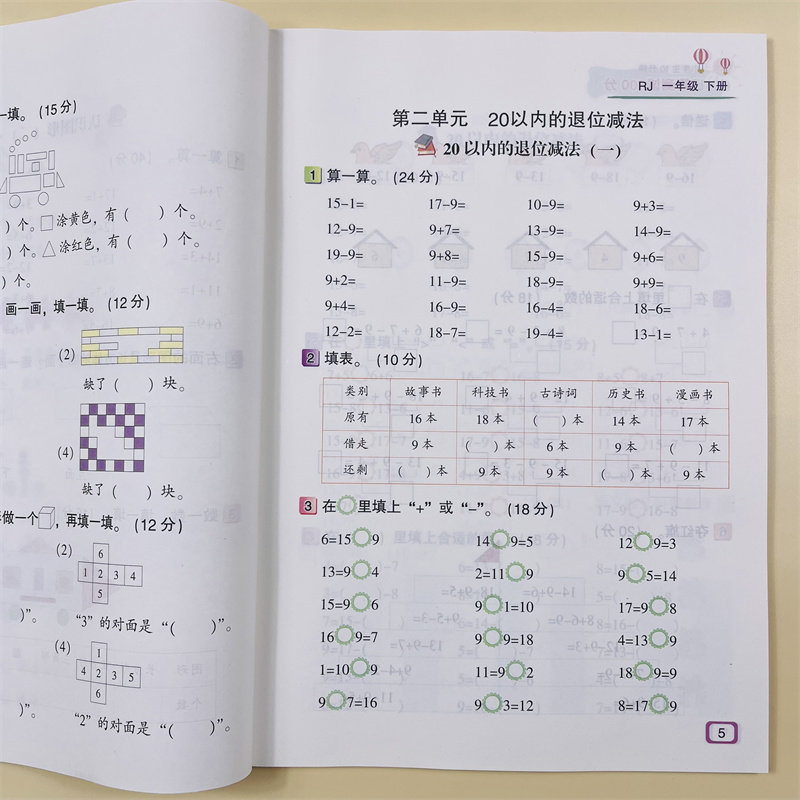 一填。(15分)
)个。□涂黄色，有( )个。
)个。△涂红色，有( )个。
)个。
画一画，填一填。(12分)
(2)
缺了( )块。
(4)
缺了( )块。
做一个 ，再填一填。(12分)
(2)
6
1 2 3 4
5
)”。 “3”的对面是“( )”。
(4)
1
4 2 3 5
6
)”。 “2”的对面是“( )”。
RJ 一年级 下册
第二单元 20以内的退位减法
20以内的退位减法(一)
1 算一算。(24分)
15-1= 17-9= 10-9= 9+3=
12-9= 9+7= 13-9= 14-9=
19-9= 9+8= 15-9= 9+6=
9+2= 11-9= 18-9= 9+9=
9+4= 16-9= 16-4= 18-6=
12-2= 18-7= 19-4= 13-1=
2 填表。(10分)
类别 故事书 科技书 古诗词 历史书 漫画书
原有 16本 18本 ( )本 14本 17本
借走 9本 ( )本 6本 9本 ( )本
还剩 ( )本 9本 9本 ( )本 9本
3 在○里填上“+”或“-”。(18分)
6=15○9 14○9=5 12○9=3
13=9○4 2=11○9 9○5=14
15=9○6 9○1=10 17=9○8
16○9=7 9○9=18 4=13○9
1=10○9 11=9○2 18○9=9
9○7=16 9○3=12 8=17○9
5